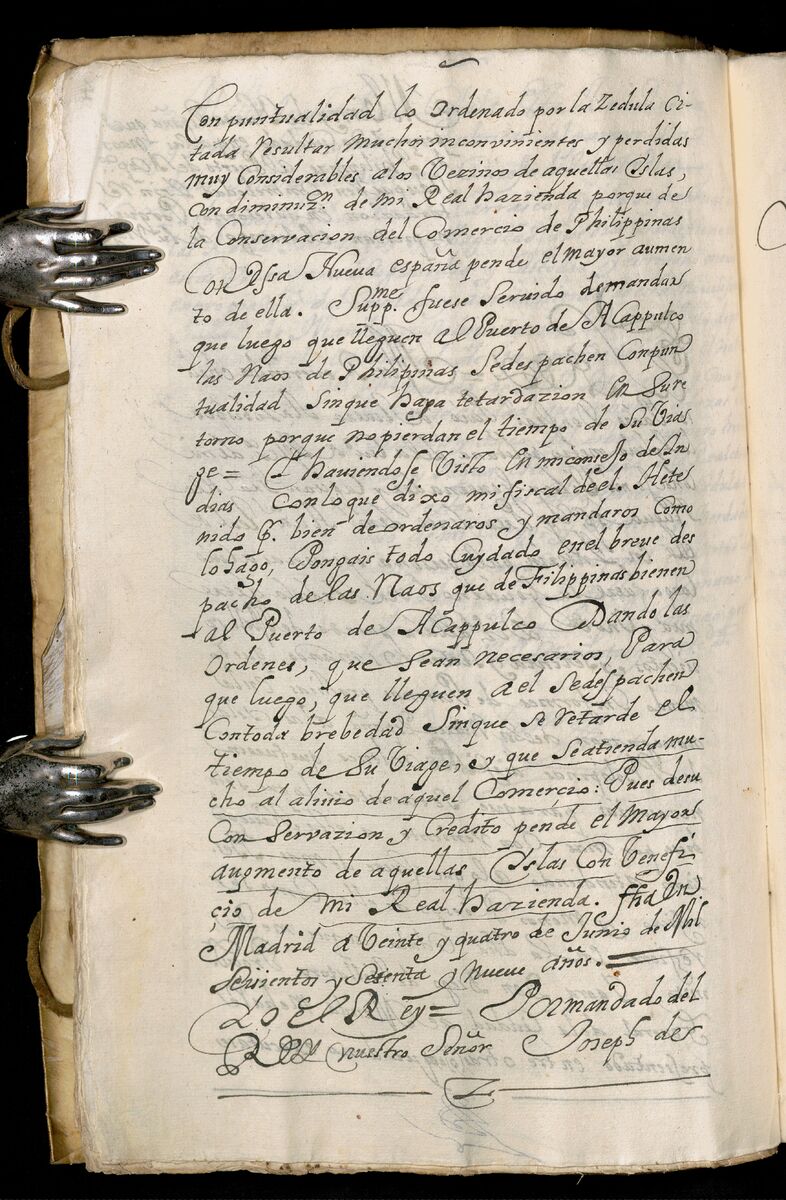 Con puntualidad lo ordenado por la Zedula Ci-
tada Resultar muchos inconvinientes y perdidas
muy Considerables alos Vezinos de aquellas Islas,
con diminuz.n de mi Real hazienda porque de
la Conservacion del Comercio de Philippinas
Con Essa Nueva españa pende el mayor aumen
to de ella. Supp.me fuese servido de mandar
que luego que lleguen al Puerto de Acappulco
las Naos de Philipinas Sedespachen Conpun
tualidad sinque haya retardazion en Su re
torno porque no pierdan el tiempo de Su Via
ge = Y haviendose Visto en mi consejo de In
dias con lo que dixo mi fiscal de el. He te
nido p. bien de ordenaros, y mandaros como
lo hago, Pongais todo Cuydado en el breve des
pacho de las Naos que de Filippinas bienen
al Puerto de Acappulco Dando las
Ordenes, que sean necesarios, Para
que luego, que lleguen a el Sedespachen
Contoda brebedad Sinque se retarde el
tiempo de Su Viage, y que se atienda mu-
cho al alivio de aquel Comerçio: Pues de su
Conservazion y Credito pende el Mayor
augmento de aquellas Yslas Con Venefi
çio de mi Real hazienda. fha En
Madrid a Veinte y quatro de Junio de Mil
Seisientos y Setenta y Nueve años. =
Yo El Rey = Por mandado del
Rey nuestro Señor Joseph de